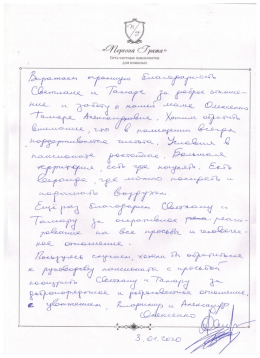 «Первая Грань»
Сеть частных пансионатов
для пожилых
Выражаем огромную благодарность
Светлане и Тамаре за доброе отноше-
ние и заботу о нашей маме Олексенко
Тамаре Александровне. Хотим обратить
внимание, что в помещении всегда
поддерживается чистота. Условия в
пансионате роскошные. Большая
территория, есть где погулять. Есть
веранда, где можно посидеть и
подышать воздухом.
Ещё раз благодарим Светлану и
Тамару за оперативное реаги-
рование на все просьбы и человечес-
кое отношение.
Пользуясь случаем, хотели бы обратиться
к руководству пансионата с просьбой
поощрить Светлану и Тамару за
добропорядочное и отношение.
С уважением, и Александр
Олексенко
3.01.2020